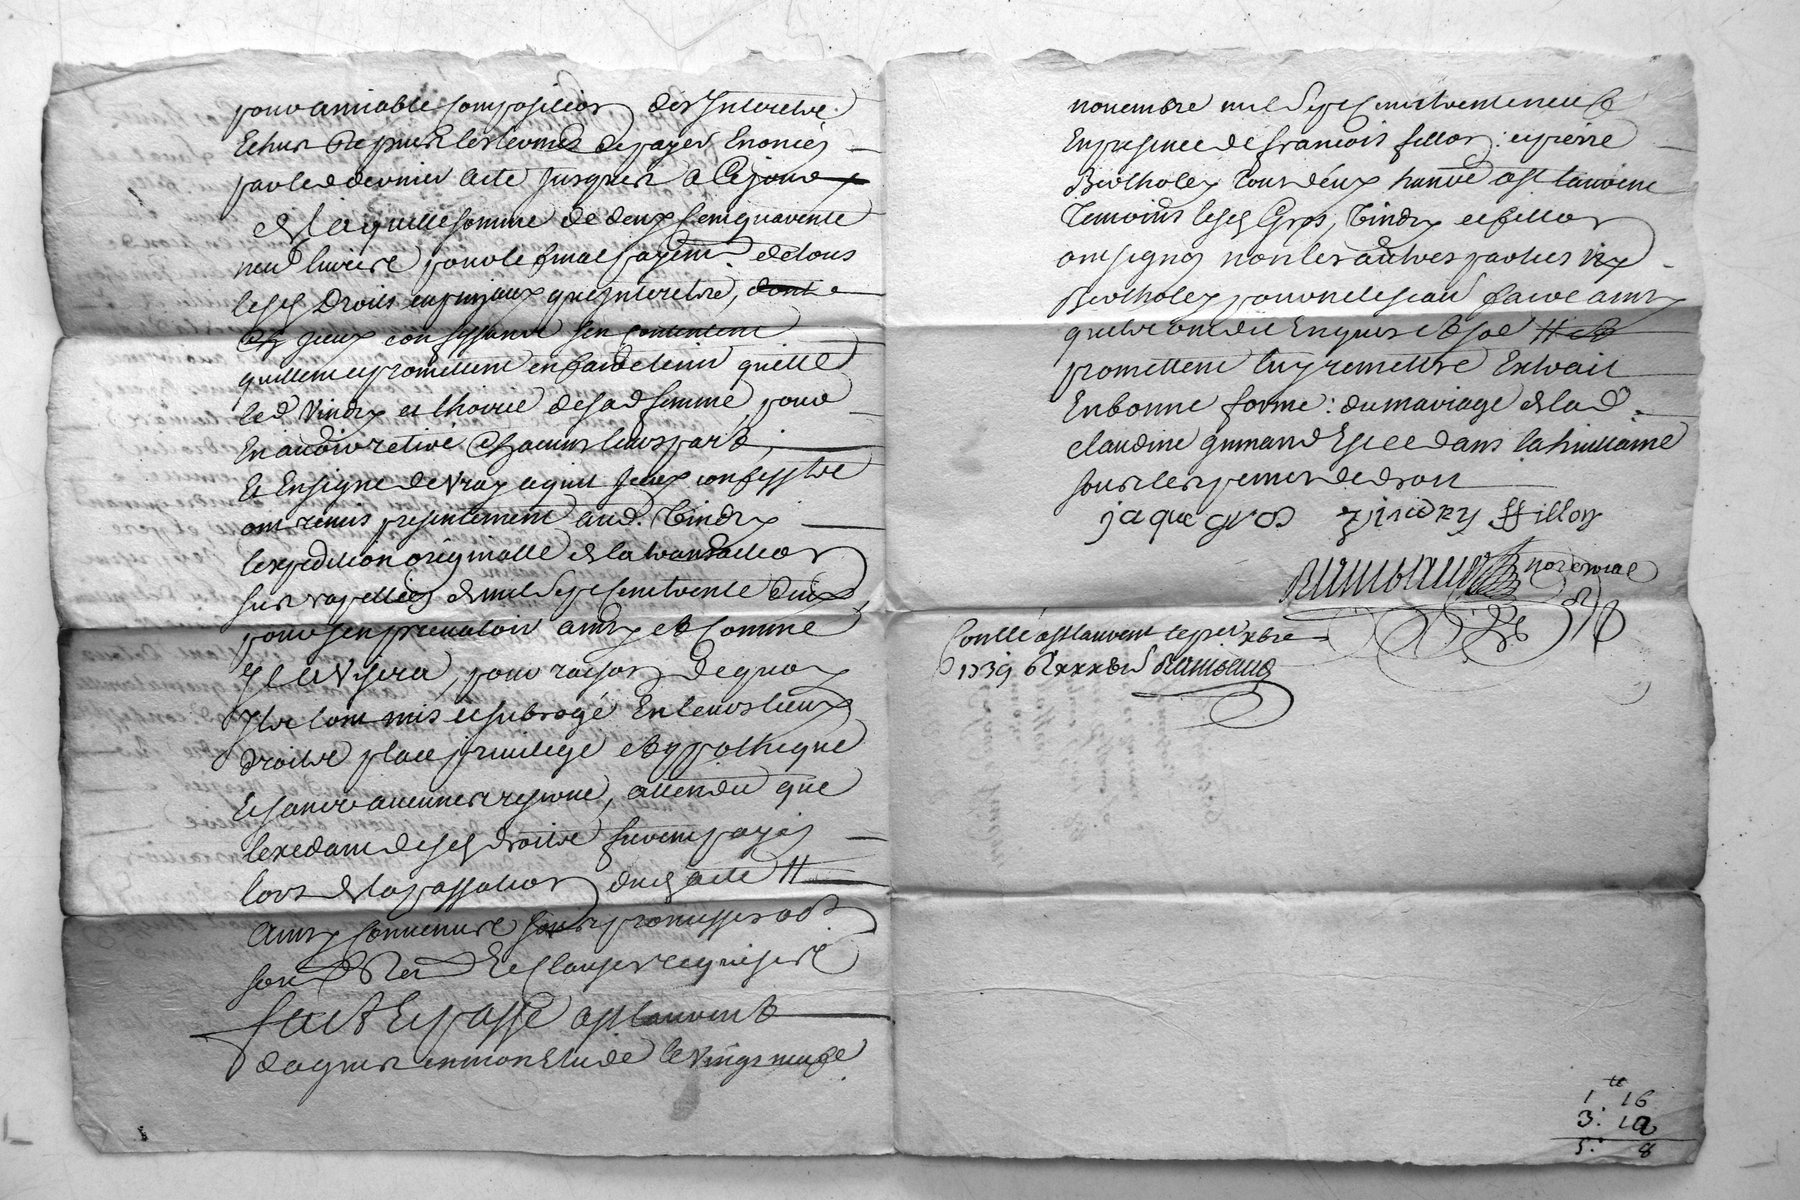 pour amiable composition des Interetz
Echus depuis les termes de payer Enoncés
par led dernier acte Jusques a Cejour
de laquelle somme de deux Cent quarente
neuf livres pour le final payemt de tous
lesd droits en principaux que Interetz,
Jceux confessants sen contentent
quittent et promettent en faire tenir quitte
led Vindry et lhoirie de sad femme, pour
En avoir retiré chacuns leurs parts
Et Ensigne de vray aquit Jceux confesstz
ont remis presentement aud. Vindry
lexpedition originalle de la transaction
sus rapellée de mil sept cent trente deux
pour sen prevaloir ainsy et Comme
Il avisera, pour raison de quoy
Ilz lont mis et subrogé En leurs lieux
droitz place privilege et hypotheque
Et sans aucune restriction, attendu que
lexedant desd droitz furent payés
lors de la passation dud acte
Ainsy Convenu promesses obon
son & Rend & Clauses requises
fait Et passé a st laurent
dagnis en mon Etude le vingt neufe
novembre mil sept cent trente neuf
En presence de francois fillon et pierre
Bertholey tous deux hants a st laurent
Temoins lesd Gros, Vindry et fillon
ont signés non les autres parties ny
Bertholey pour ne le scavoir faire ainsy
quilz ont dit Enquis et
promettent luy remettre Extrait
En bonne forme: du mariage de lad.
claudine guinand Icee dans la huitaine
sous les peines de droit
jaque gros vindry ffillon
Rambaud nore royal
Conllé a st laurent le per xbre
1739 R Rambaud
1 tt 16
3: 12
5: 8